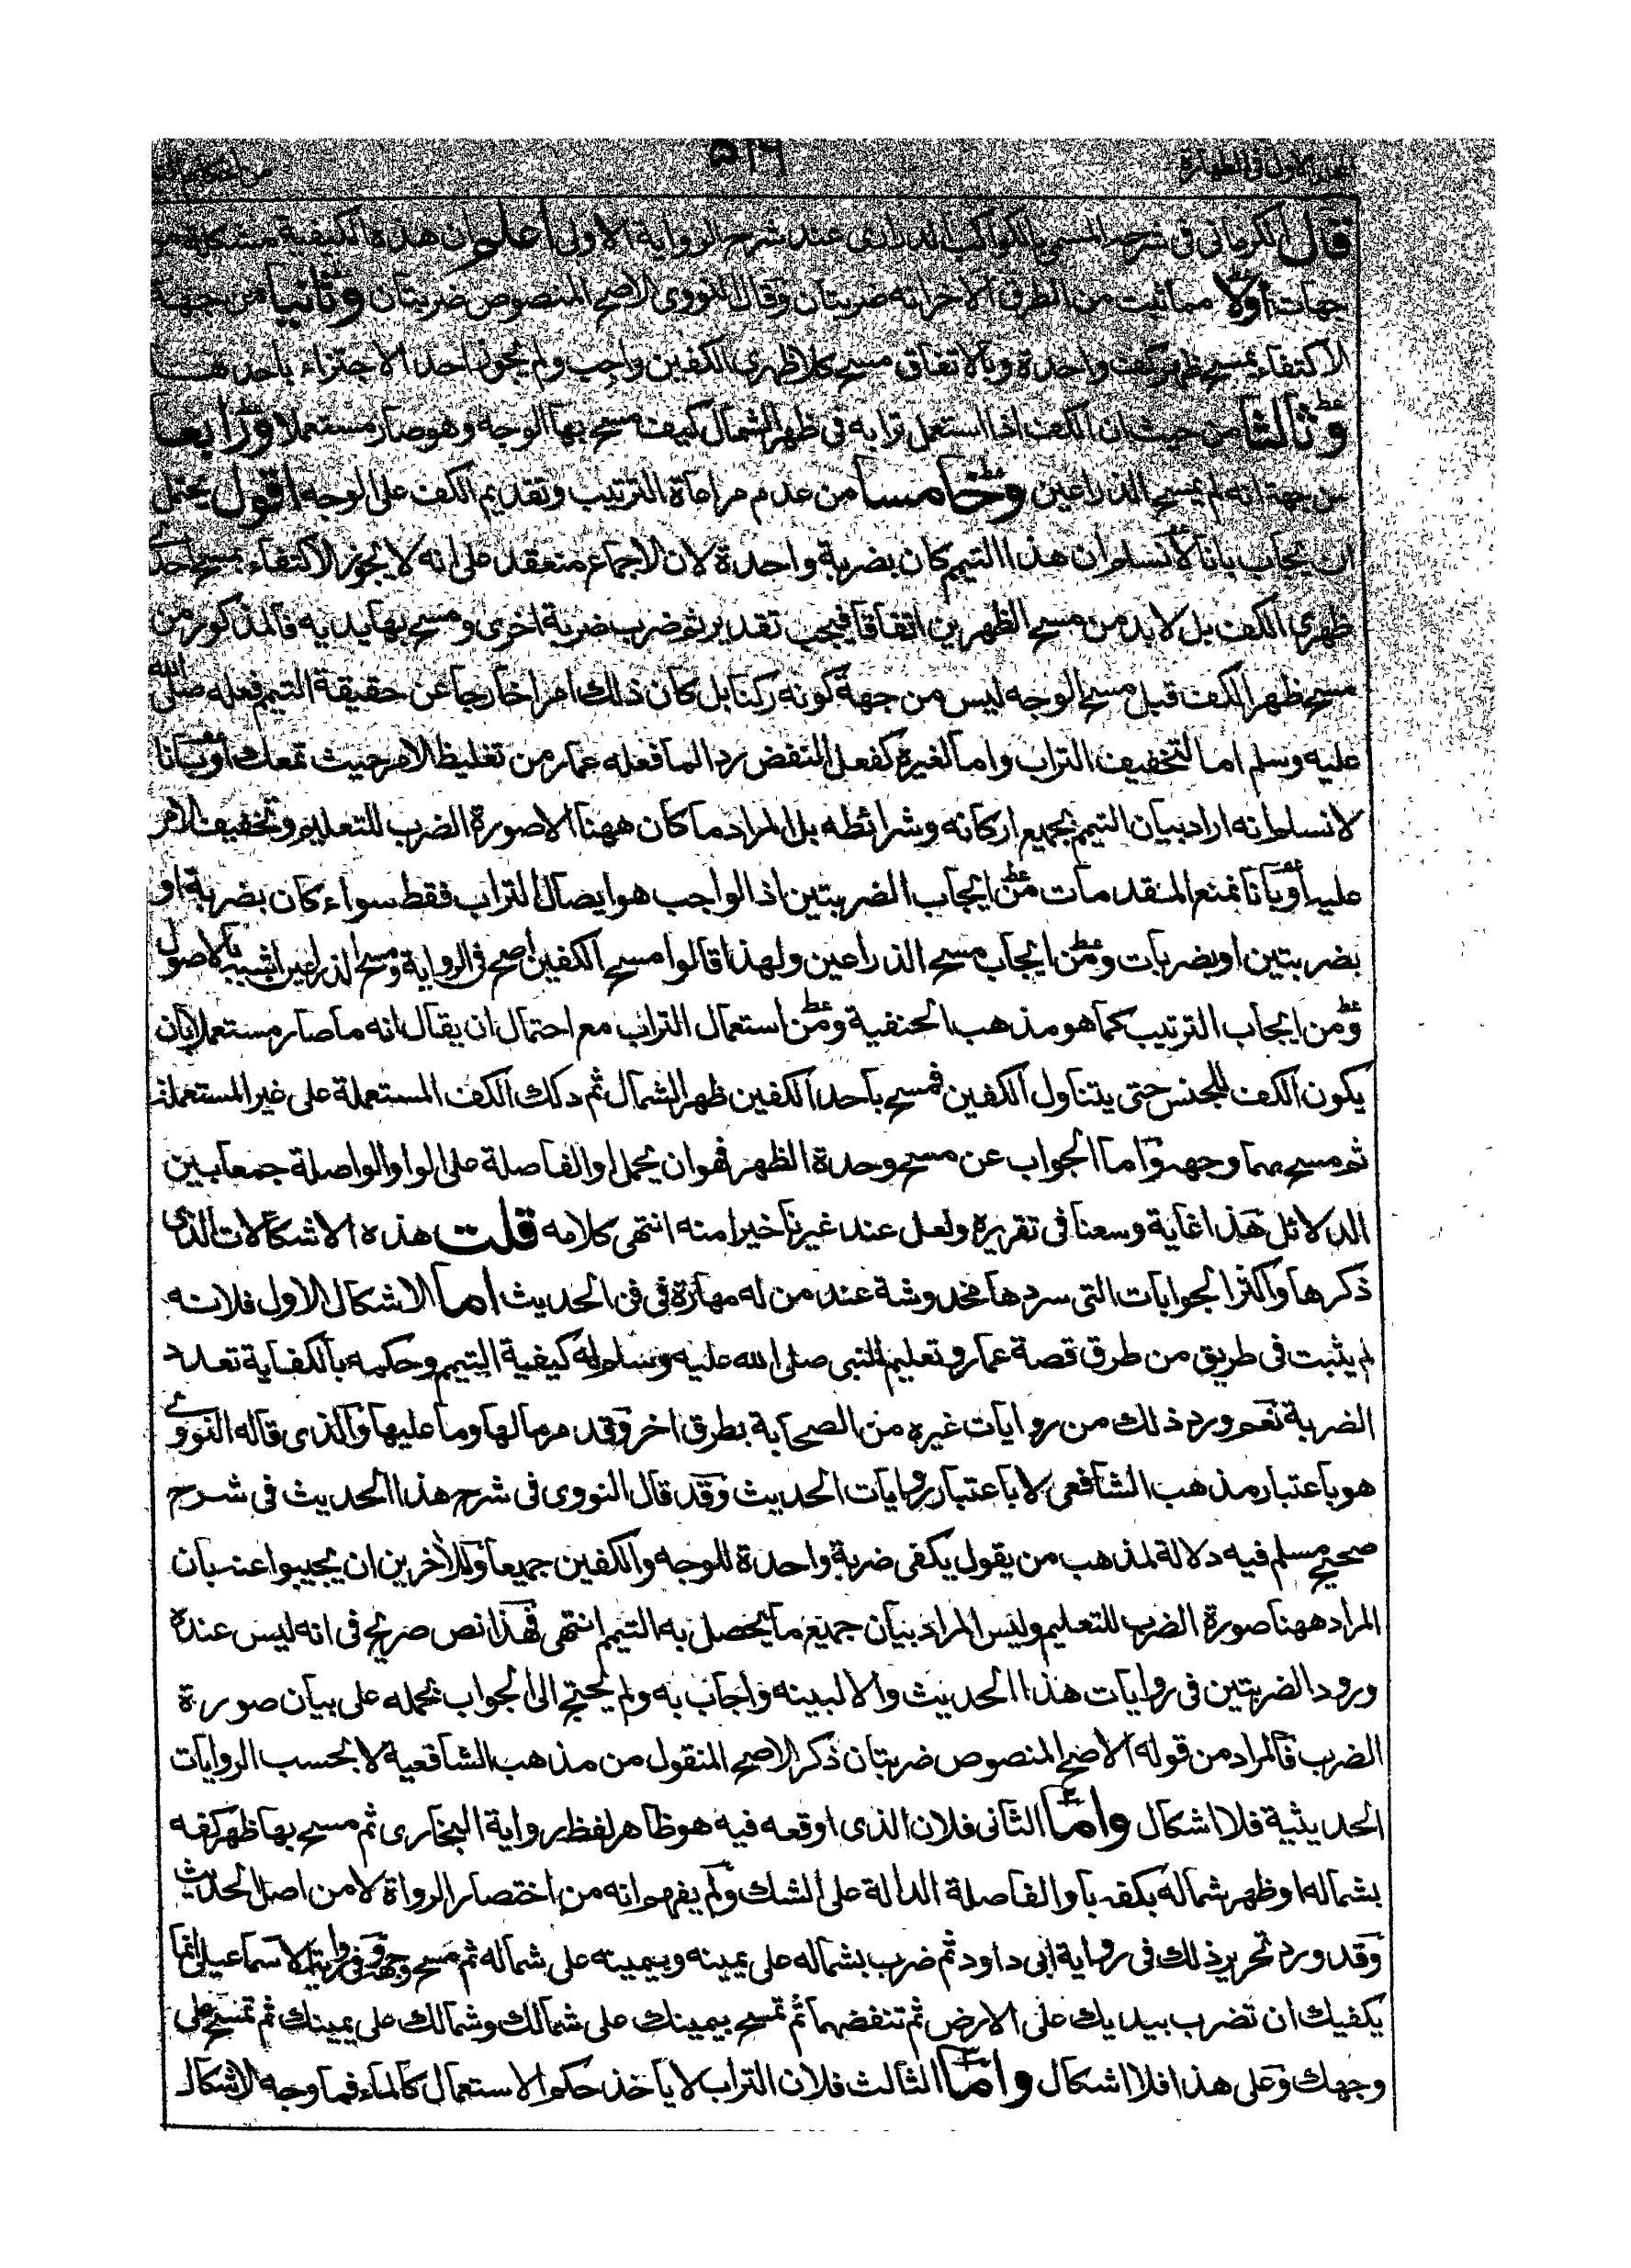 المجلد الاول فى الطهارة ٥١٦
قال الكرمانى فى شرحه المسمى بالكواكب الدرارى عند شرح الرواية الاولى اعلم ان هذه الكيفية مشكلة من
جهات اولا مما ثبت من الطرق الاخرانه ضربتان وقال النووى الاصح المنصوص ضربتان وثانيا من جهة
الاكتفاء بمسح ظهر كف واحدة وبالاتفاق مسح كلا ظهرى الكفين واجب ولم يجوز احد الاجتزاء باحدهما
وثالثا من حيث ان الكف اذا استعمل ترابه فى ظهر الشمال كيف مسح بها الوجه وهو صار مستعملا ورابعا
من جهة انه لم يمسح الذراعين وخامسا من عدم مراعاة الترتيب وتقديم الكف على الوجه اقول يحتمل
ان يجاب بانا لا نسلم ان هذا التيمم كان بضربة واحدة لان الاجماع منعقد على انه لا يجوز الاكتفاء بمسح احد
ظهرى الكف بل لا بد من مسح الظهرين اتفاقا فيجب تقدير ثم ضرب ضربة اخرى ومسح بها يديه فالمذكور من
مسح ظهر الكف قبل مسح الوجه ليس من جهة كونه ركنا بل كان ذلك امرا خارجا عن حقيقة التيمم فعله صلى الله
عليه وسلم اما لتخفيف التراب واما لغيره كفعل النفض رد الما فعله عمار من تغليظ الامر حيث تمعك اوبانا
لا نسلم انه اراد بيان التيمم بجميع اركانه وشرائطه بل المراد ما كان ههنا الا صورة الضرب للتعليم وتخفيف الامر
عليه اوبانا نمنع المقدمات من ايجاب الضربتين اذ الواجب هو ايصال التراب فقط سواء كان بضربة او
بضربتين او بضربات ومن ايجاب مسح الذراعين ولهذا قالوا مسح الكفين اصح فى الرواية ومسح الذراعين اشبه بالاصول
ومن ايجاب الترتيب كما هو مذهب الحنفية ومن استعمال التراب مع احتمال ان يقال انه ما صار مستعملا بان
يكون الكف للجنس حتى يتناول الكفين فمسح باحد الكفين ظهر الشمال ثم دلك الكف المستعملة على غير المستعملة
ثم مسح بهما وجهه واما الجواب عن مسح وحدة الظهر فهو ان يحمل او الفاصلة على الواو الواصلة جمعا بين
الدلائل هذا غاية وسعنا فى تقريره ولعل عند غيرنا خيرا منه انتهى كلامه قلت هذه الاشكالات الذى
ذكرها واكثر الجوابات التى سردها مخدوشة عند من له مهارة فى فن الحديث اما الاشكال الاول فلانه
لم يثبت فى طريق من طرق قصة عمار وتعليم النبى صلى الله عليه وسلم له كيفية التيمم وحكمه بالكفاية تعدد
الضربة نعم ورد ذلك من روايات غيره من الصحابة بطرق اخر وقد مر ما لها وما عليها والذى قاله النووى
هو باعتبار مذهب الشافعى لا باعتبار روايات الحديث وقد قال النووى فى شرح هذا الحديث فى شرح
صحيح مسلم فيه دلالة لمذهب من يقول يكفى ضربة واحدة للوجه والكفين جميعا وللاخرين ان يجيبوا عنه بان
المراد ههنا صورة الضرب للتعليم وليس المراد بيان جميع ما يحصل به التيمم انتهى فهذا نص صريح فى انه ليس عنده
ورود الضربتين فى روايات هذا الحديث والا لبينه واجاب به ولم يحتج الى الجواب بحمله على بيان صورة
الضرب فالمراد من قوله الاصح المنصوص ضربتان ذكر الاصح المنقول من مذهب الشافعية لا بحسب الروايات
الحديثية فلا اشكال واما الثانى فلان الذى اوقعه فيه هو ظاهر لفظ رواية البخارى ثم مسح بها ظهر كفه
بشماله او ظهر شماله بكفه باو الفاصلة الدالة على الشك ولم يفهم انه من اختصار الرواة لا من اصل الحديث
وقد ورد تحرير ذلك فى رواية ابى داود ثم ضرب بشماله على يمينه وبيمينه على شماله ثم مسح وجهه وفى رواية الاسماعيلى انما
يكفيك ان تضرب بيديك على الارض ثم تنفضهما ثم تمسح بيمينك على شمالك وشمالك على يمينك ثم تمسح على
وجهك وعلى هذا فلا اشكال واما الثالث فلان التراب لا ياخذ حكم الاستعمال كالماء فما وجه الاشكال